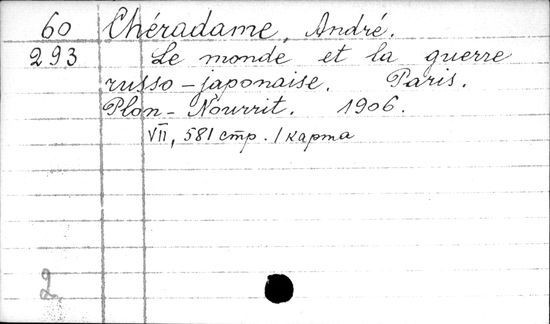 60 Chéradame, André.
293 Le monde et la guerre
russo-japonaise. Paris.
Plon-Nourrit. 1906.
VII, 581 стр. 1 карта
2